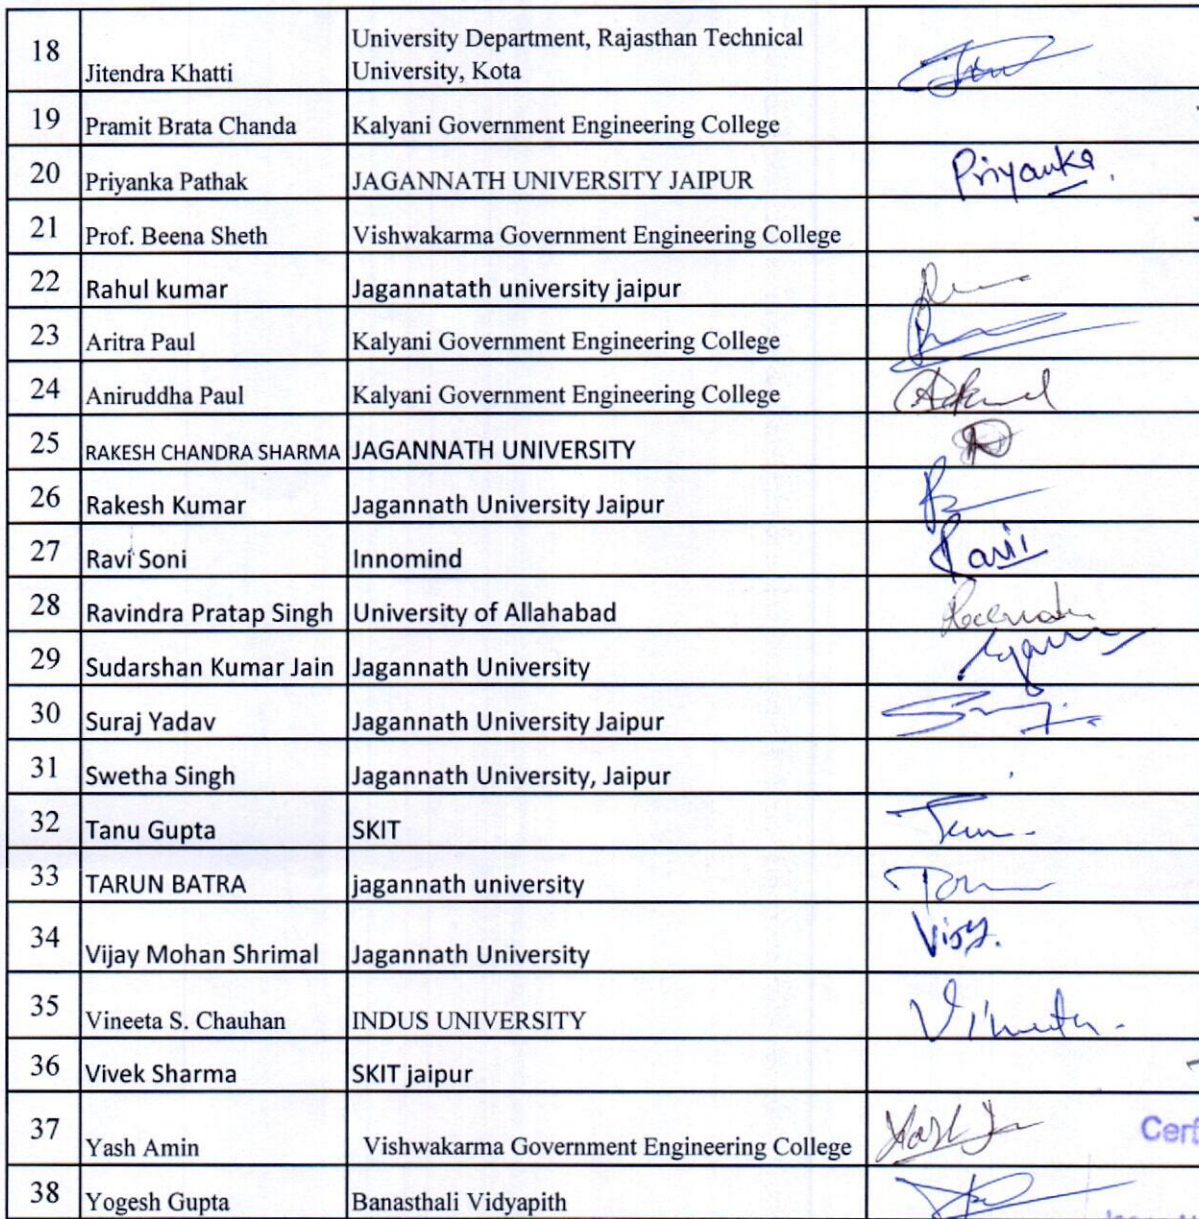 18 Jitendra Khatti University Department, Rajasthan Technical
University, Kota
19 Pramit Brata Chanda Kalyani Government Engineering College
20 Priyanka Pathak JAGANNATH UNIVERSITY JAIPUR Priyanka.
21 Prof. Beena Sheth Vishwakarma Government Engineering College
22 Rahul kumar Jagannatath university jaipur
23 Aritra Paul Kalyani Government Engineering College
24 Aniruddha Paul Kalyani Government Engineering College
25 RAKESH CHANDRA SHARMA JAGANNATH UNIVERSITY
26 Rakesh Kumar Jagannath University Jaipur
27 Ravi Soni Innomind
28 Ravindra Pratap Singh University of Allahabad
29 Sudarshan Kumar Jain Jagannath University
30 Suraj Yadav Jagannath University Jaipur
31 Swetha Singh Jagannath University, Jaipur
32 Tanu Gupta SKIT
33 TARUN BATRA jagannath university
34 Vijay Mohan Shrimal Jagannath University
35 Vineeta S. Chauhan INDUS UNIVERSITY
36 Vivek Sharma SKIT jaipur
37 Yash Amin Vishwakarma Government Engineering College
38 Yogesh Gupta Banasthali Vidyapith